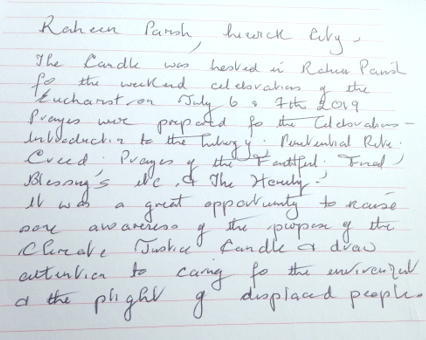 Raheen Parish, Limerick City.
The Candle was hosted in Raheen Parish
for the weekend celebrations of the
Eucharist on July 6 & 7th 2019
Prayers were prepared for the Celebrations -
Introduction to the Liturgy. Penitential Rite.
Creed. Prayers of the Faithful. Final
Blessing's etc, & The Homily.
It was a great opportunity to raise
some awareness of the purpose of the
Climate Justice Candle & draw
attention to caring for the environment
& the plight of displaced people.